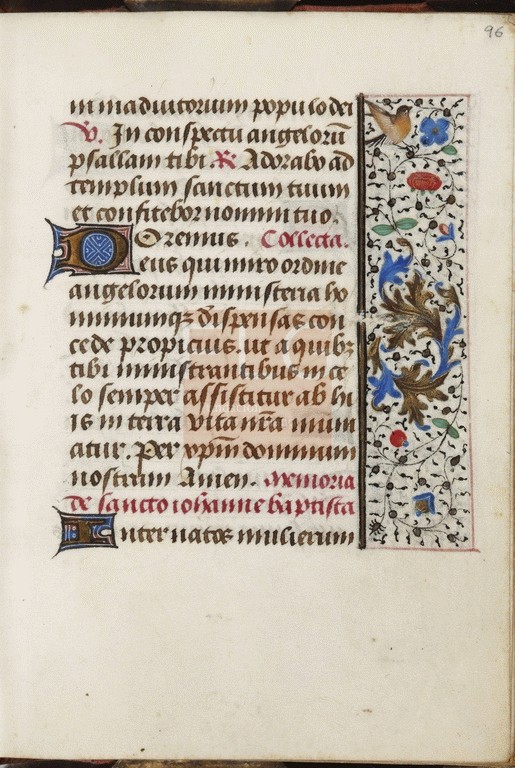 96
in inadiutorium populo dei
V. In conspectu angeloru̅
psallam tibi R Adorabo ad
templum sanctum tuum
et confitebor nomini tuo.
Oremus. Collecta.
Deus qui miro ordine
angelorum ministeria ho
minumqz dispensas con
cede propicius. ut a quibz
tibi ministrantibus in ce
lo semper assistitur ab hi
is in terra vita nr̅a mun
iatur. Per xp̅m dominum
nostrum Amen. Memoria
de sancto iohanne baptista
Inter natos mulierum